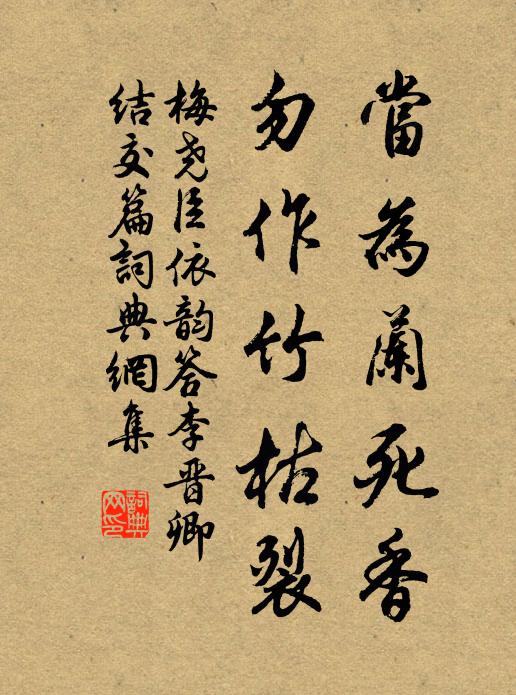 當為蘭死香
勿作竹枯裂
梅尧臣依韵答李晋卿
结交篇詞典網集
詞典
网印